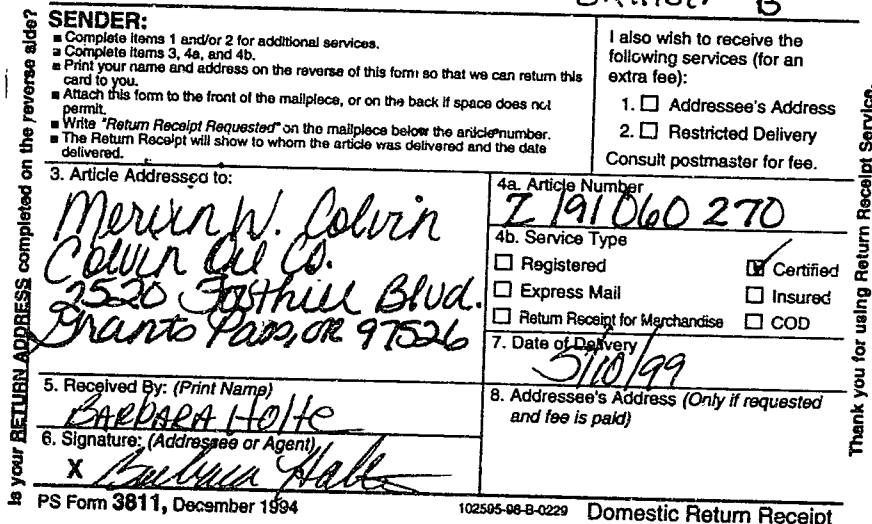 B
SENDER:
■ Complete items 1 and/or 2 for additional services.
■ Complete items 3, 4a, and 4b.
■ Print your name and address on the reverse of this form so that we can return this
card to you.
■ Attach this form to the front of the mailpiece, or on the back if space does not
permit.
■ Write "Return Receipt Requested" on the mailpiece below the article number.
■ The Return Receipt will show to whom the article was delivered and the date
delivered.
I also wish to receive the
following services (for an
extra fee):
1. ☐ Addressee's Address
2. ☐ Restricted Delivery
Consult postmaster for fee.
3. Article Addressed to:
Mervin W. Colvin
Colvin Oil Co.
2520 Foothill Blvd.
Grants Pass, OR 97526
4a. Article Number
Z 191 060 270
4b. Service Type
☐ Registered
☑ Certified
☐ Express Mail
☐ Insured
☐ Return Receipt for Merchandise
☐ COD
7. Date of Delivery
5/10/99
5. Received By: (Print Name)
BARBARA HOLTE
6. Signature: (Addressee or Agent)
X Barbara Holte
8. Addressee's Address (Only if requested
and fee is paid)
PS Form 3811, December 1994
102595-98-B-0229
Domestic Return Receipt
Is your RETURN ADDRESS completed on the reverse side?
Thank you for using Return Receipt Service.